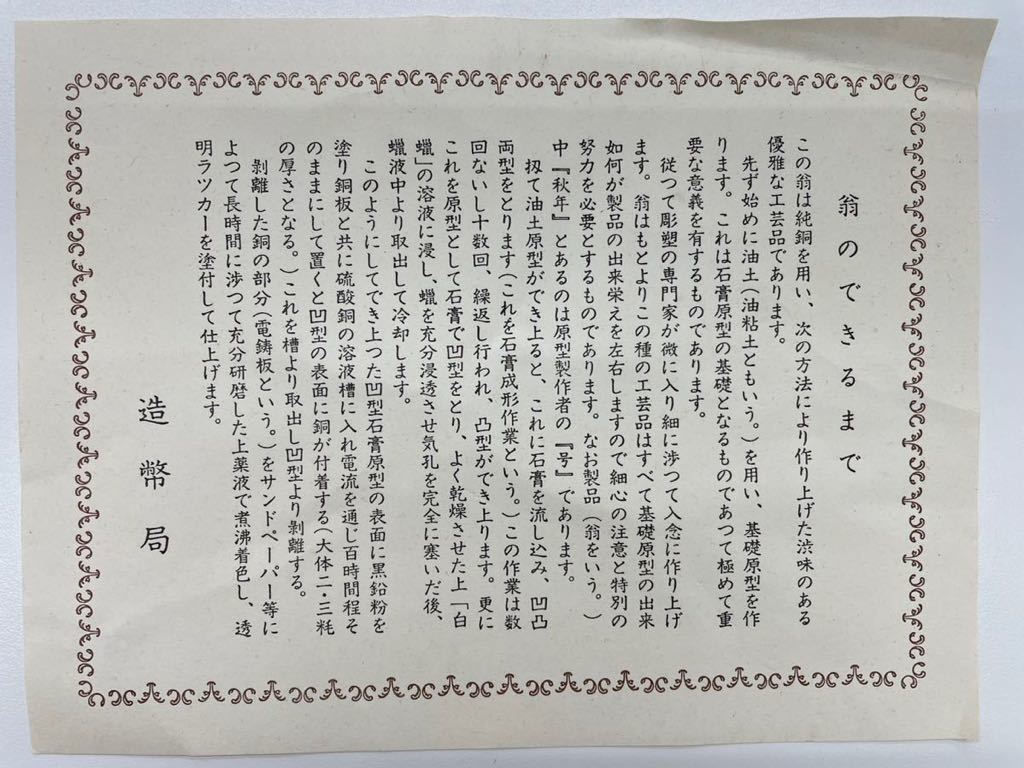 翁のできるまで
この翁は純銅を用い、次の方法により作り上げた渋味のある
優雅な工芸品であります。
先ず始めに油土（油粘土ともいう。）を用い、基礎原型を作
ります。これは石膏原型の基礎となるものであつて極めて重
要な意義を有するものであります。
従つて彫塑の専門家が微に入り細に渉つて入念に作り上げ
ます。翁はもとよりこの種の工芸品はすべて基礎原型の出来
如何が製品の出来栄えを左右しますので細心の注意と特別の
努力を必要とするものであります。なお製品（翁をいう。）
中『秋年』とあるのは原型製作者の『号』であります。
扨て油土原型ができ上ると、これに石膏を流し込み、凹凸
両型をとります（これを石膏成形作業という。）この作業は数
回ないし十数回、繰返し行われ、凸型ができ上ります。更に
これを原型として石膏で凹型をとり、よく乾燥させた上「白
蠟」の溶液に浸し、蠟を充分浸透させ気孔を完全に塞いだ後、
蠟液中より取出して冷却します。
このようにしてでき上つた凹型石膏原型の表面に黒鉛粉を
塗り銅板と共に硫酸銅の溶液槽に入れ電流を通じ百時間程そ
のままにして置くと凹型の表面に銅が付着する（大体二・三粍
の厚さとなる。）これを槽より取出し凹型より剝離する。
剝離した銅の部分（電鋳板という。）をサンドペーパー等に
よつて長時間に渉つて充分研磨した上薬液で煮沸着色し、透
明ラツカーを塗付して仕上げます。
造幣局